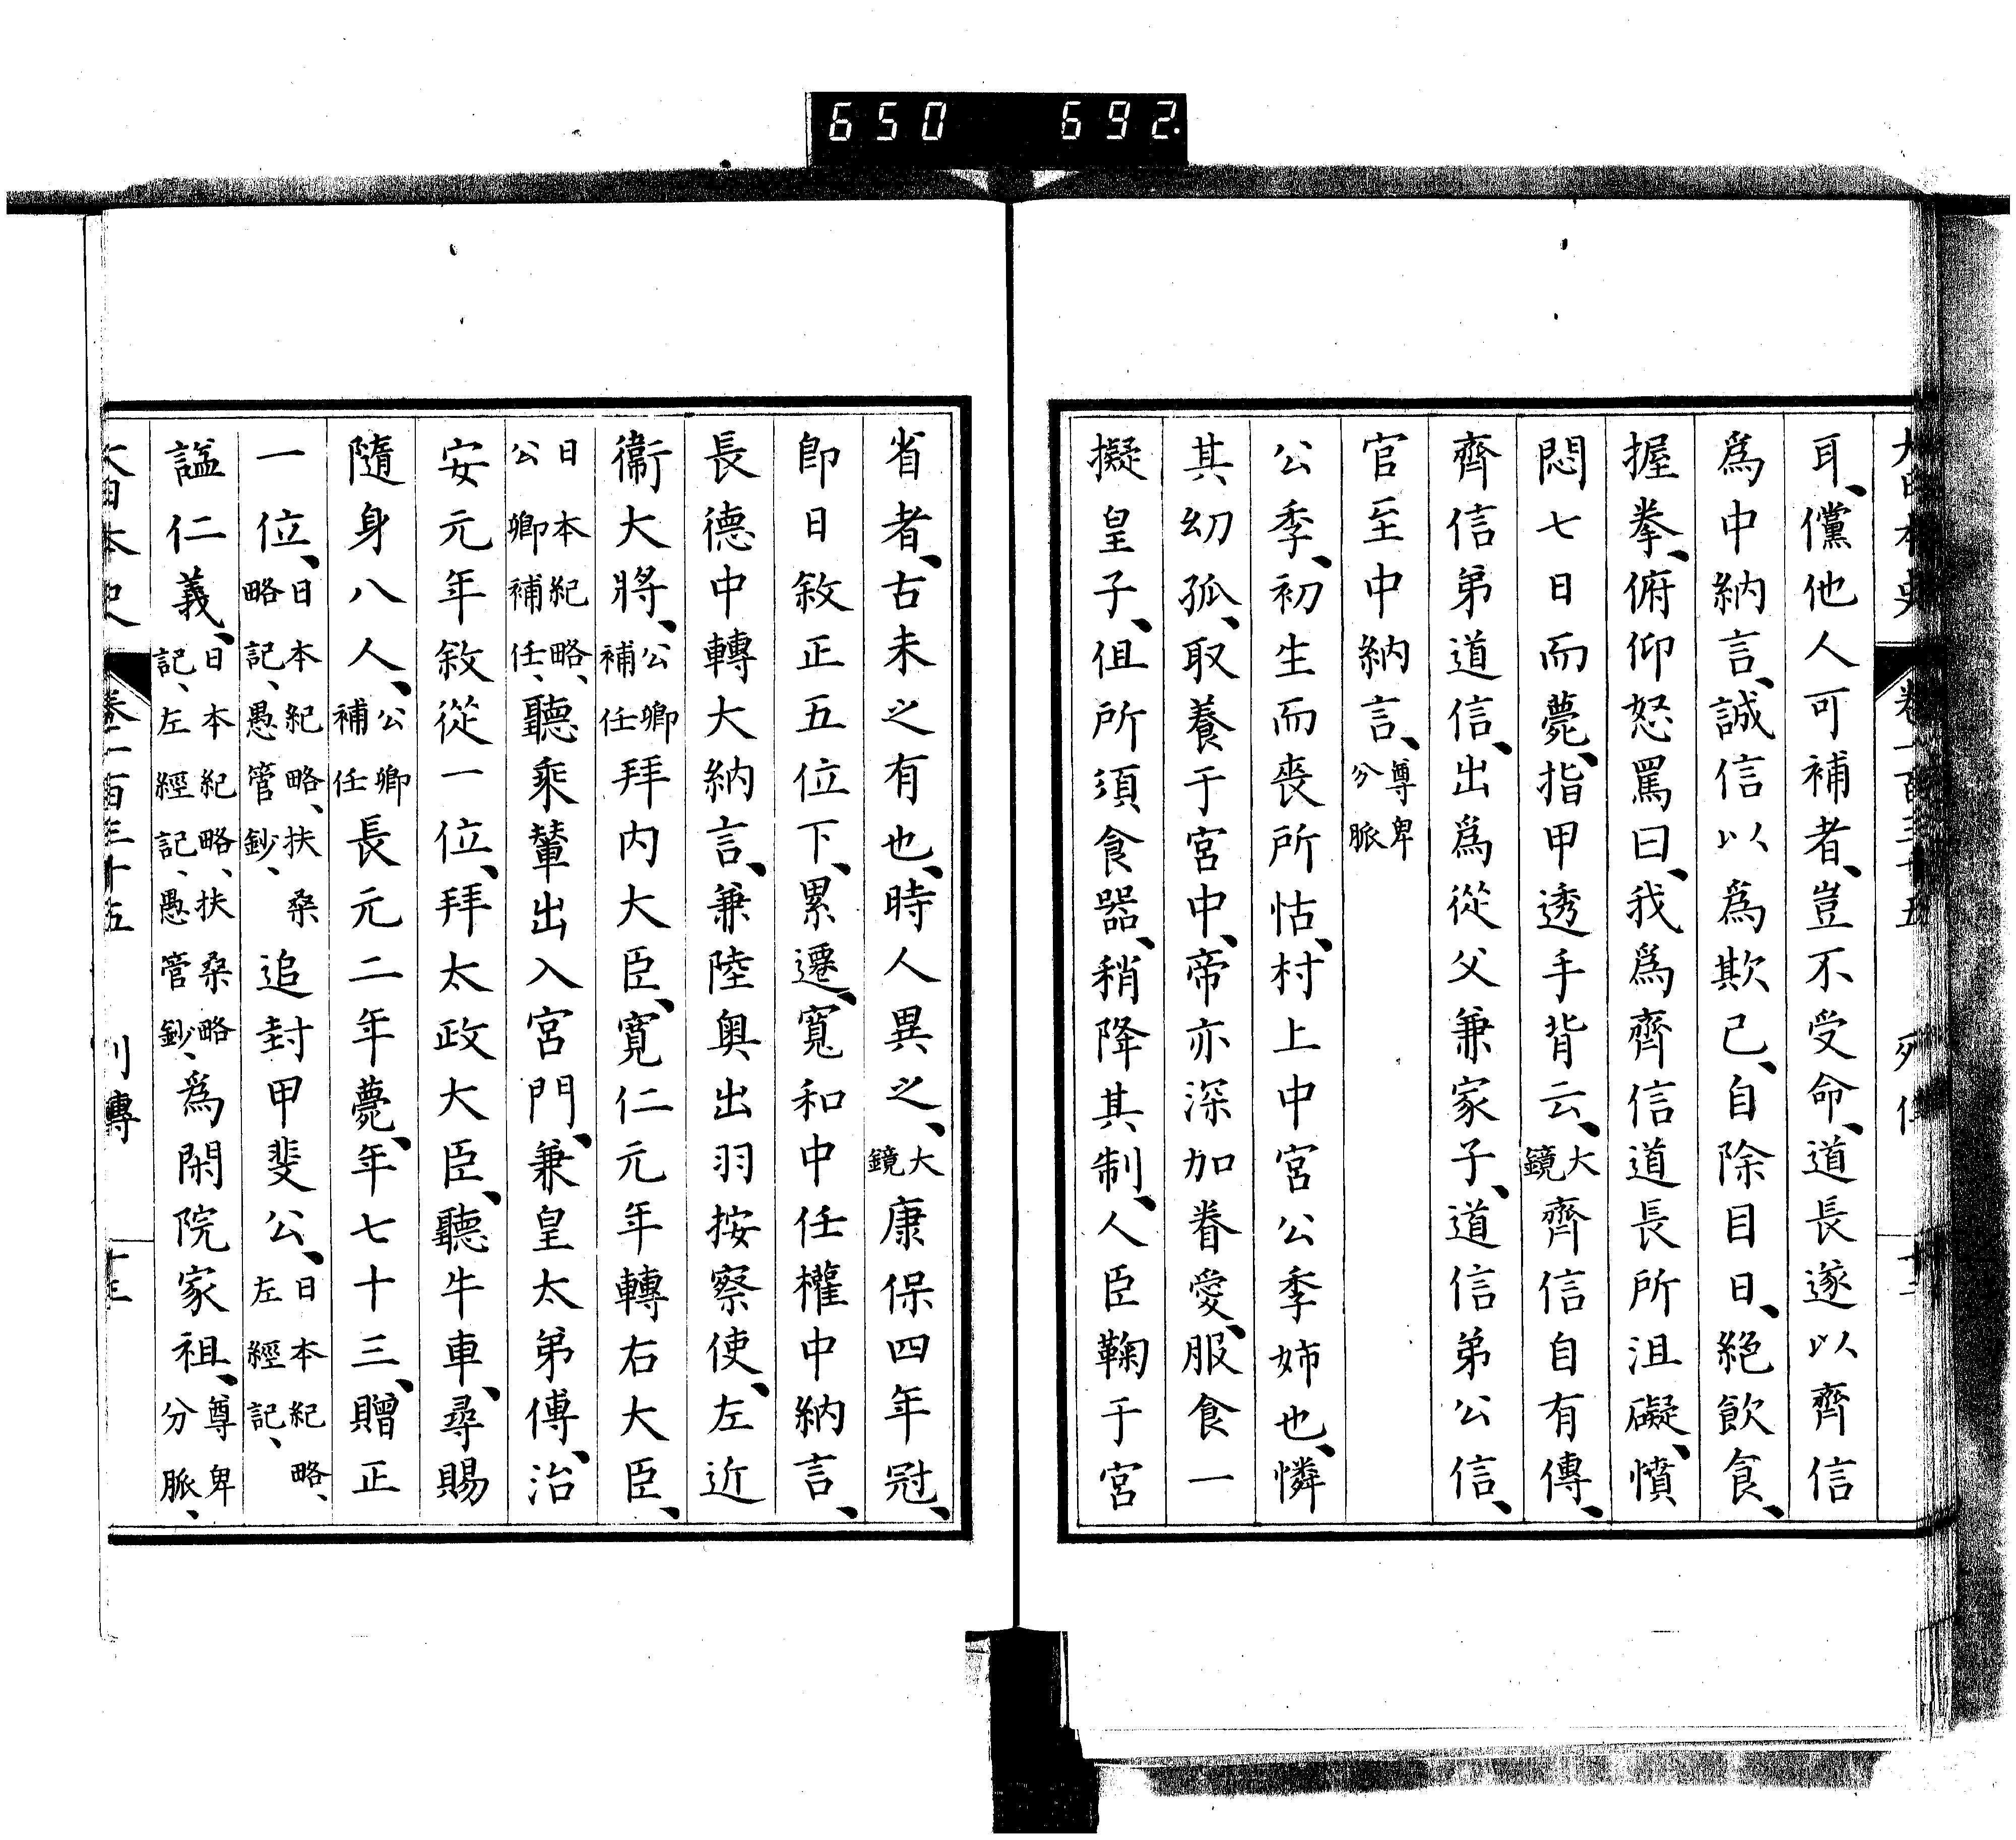 650 692.
大日本史 卷一百三十五 列傳
耳、儻他人可補者、豈不受命、道長遂以齊信
爲中納言、誠信以爲欺己、自除目日、絕飮食、
握拳、俯仰怒罵曰、我爲齊信道長所沮礙、憤
悶七日而薨、指甲透手背云、大鏡齊信自有傳、
齊信弟道信、出爲從父兼家子、道信弟公信、
官至中納言、尊卑分脈
公季、初生而喪所怙、村上中宮公季姉也、憐
其幼孤、取養于宮中、帝亦深加眷愛、服食一
擬皇子、但所須食器、稍降其制、人臣鞠于宮
省者、古未之有也、時人異之、大鏡康保四年冠、
卽日敘正五位下、累遷、寬和中任權中納言、
長德中轉大納言、兼陸奥出羽按察使、左近
衞大將、公卿補任拜内大臣、寬仁元年轉右大臣、
日本紀略、公卿補任、聽乘輦出入宮門、兼皇太弟傅、治
安元年敘從一位、拜太政大臣、聽牛車、尋賜
隨身八人、公卿補任長元二年薨、年七十三、贈正
一位、日本紀略、扶桑略記、愚管鈔、追封甲斐公、日本紀略、左經記、
諡仁義、日本紀略、扶桑略記、左經記、愚管鈔、爲閑院家祖、尊卑分脈、
大日本史 卷一百三十五 列傳 十三